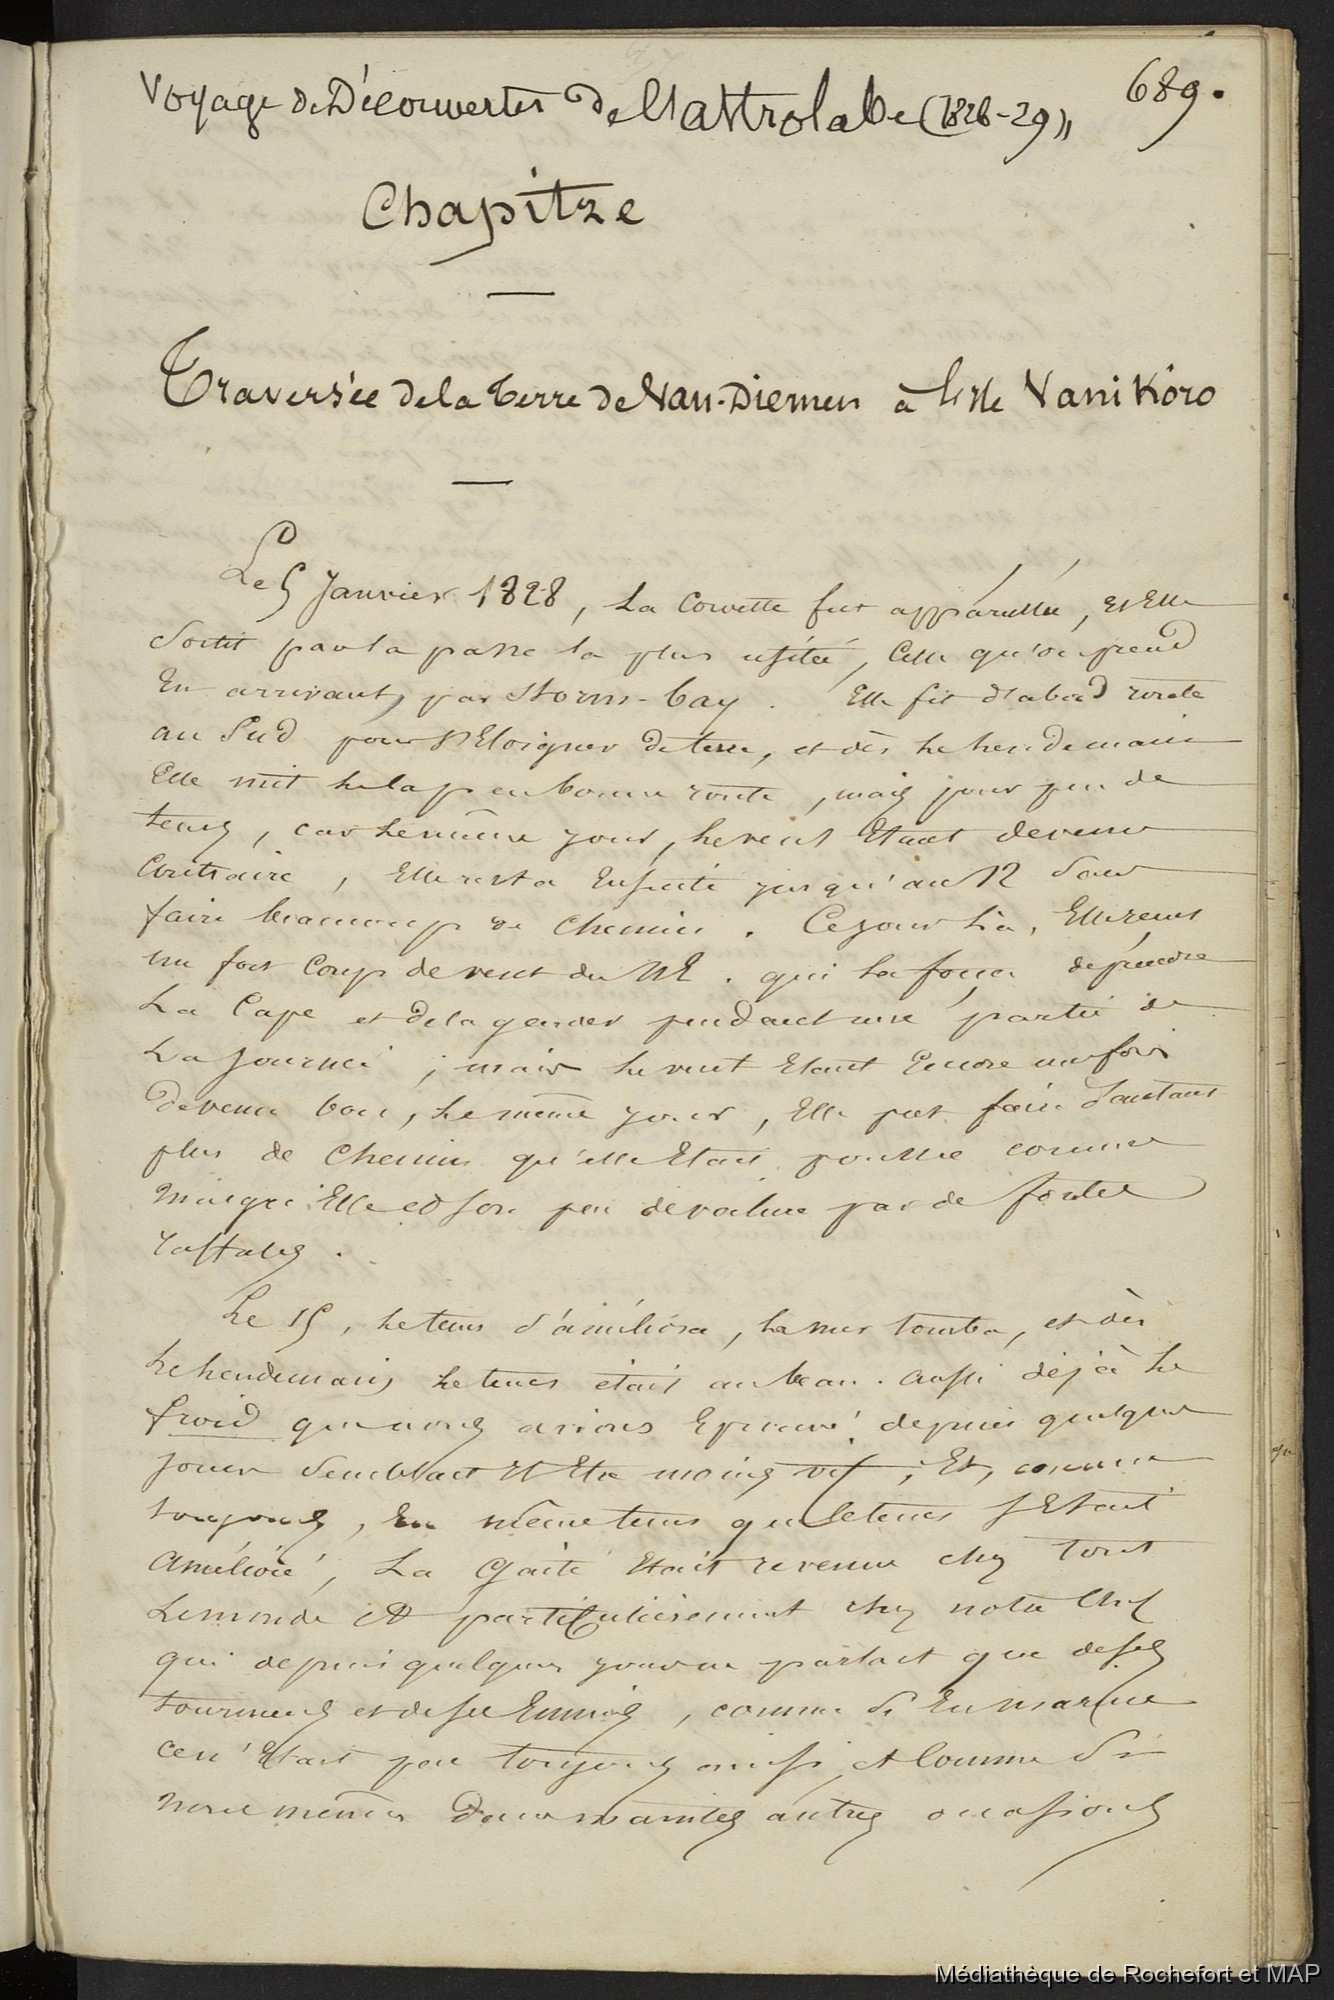 Voyage de Découvertes de l'astrolabe (1826-29)
689.
Chapitre
Traversée de la terre de Van-Diemen à l'Isle Vanikoro
Le 5 Janvier 1828, La Corvette fut appareillée, Et Elle
Sortit par la passe la plus usitée, Celle qu'on prend
En arrivant, par Storm-bay. Elle fit d'abord route
au Sud pour s'Eloigner de terre, et dès le lendemain
Elle mit le cap en bonne route, mais pour peu de
tems, car le même jour, le vent Etant devenu
Contraire, Elle resta Ensuite jusqu'au 12 Sans
faire beaucoup de Chemin. Ce jour là, Elle reçut
un fort Coup de vent du NE. qui la força de prendre
La Cape et de la garder pendant une partie de
La Journée; mais le vent Etant Encore une fois
devenu bon, le même jour, Elle put faire d'autant
plus de Chemin qu'elle Etait poussée comme
malgré Elle et son peu de voilure par de fortes
raffales.
Le 15, le tems s'améliora, la mer tomba, et dès
le lendemain le tems était au beau. aussi déjà le
froid que nous avions Eprouvé depuis quelques
jours Semblait Et Etre moins vif; Et, comme
toujours, En même tems que le tems s'Etait
Amélioré, La Gaité Etait revenue chez tout
Le monde Et particulièrement chez notre Chef
qui depuis quelques jours ne parlait que de ses
tourmens et de ses Ennuis, comme Si En marine
ce n'Etait pas toujours ainsi, Et Comme Si
nous mêmes Dans maintes autres occasions
Médiathèque de Rochefort et MAP